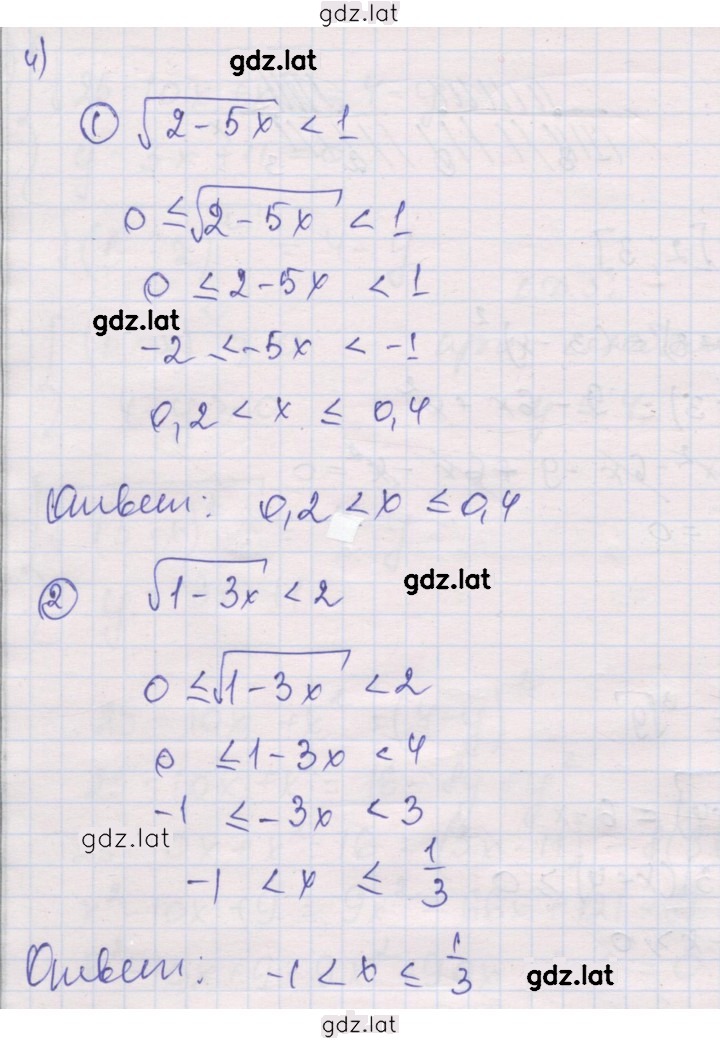 gdz.lat
4)
gdz.lat
① √(2 - 5x) < 1
0 ≤ √(2 - 5x) < 1
0 ≤ 2 - 5x < 1
gdz.lat
-2 ≤ -5x < -1
0,2 < x ≤ 0,4
Ответ: 0,2 < x ≤ 0,4
② √(1 - 3x) < 2
gdz.lat
0 ≤ √(1 - 3x) < 2
0 ≤ 1 - 3x < 4
-1 ≤ -3x < 3
gdz.lat
-1 < x ≤ 1/3
Ответ: -1 < x ≤ 1/3
gdz.lat
gdz.lat